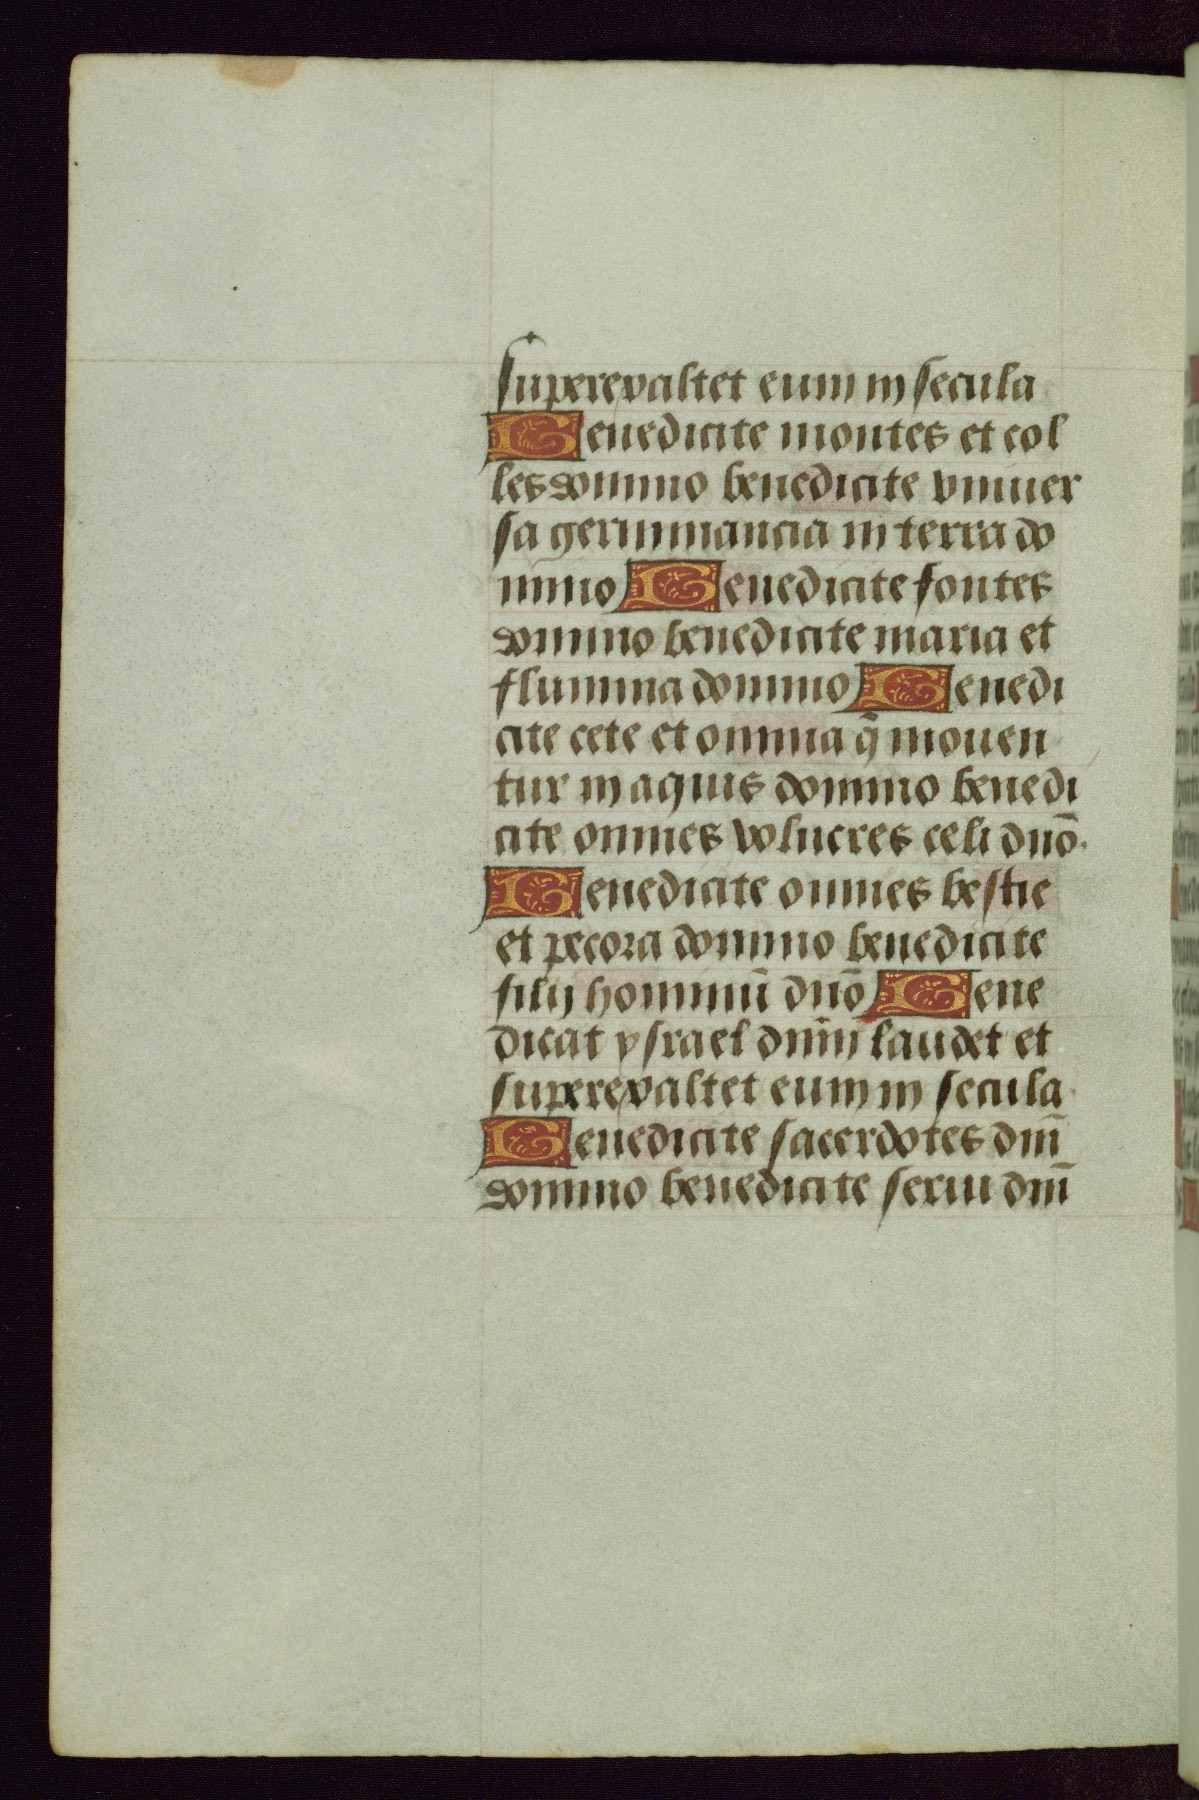 superexaltet eum in secula
Benedicite montes et col
les domino benedicite vniuer
sa germinancia in terra do
mino Benedicite fontes
domino benedicite maria et
flumina domino Benedi
cite cete et omnia q̄ mouen
tur in aquis domino benedi
cite omnes volucres celi dn̄o.
Benedicite omnes bestie
et pecora domino benedicite
filij hominū dn̄o Bene
dicat ysrael dn̄m laudet et
superexaltet eum in secula
Benedicite sacerdotes dn̄i
domino benedicite serui dn̄i